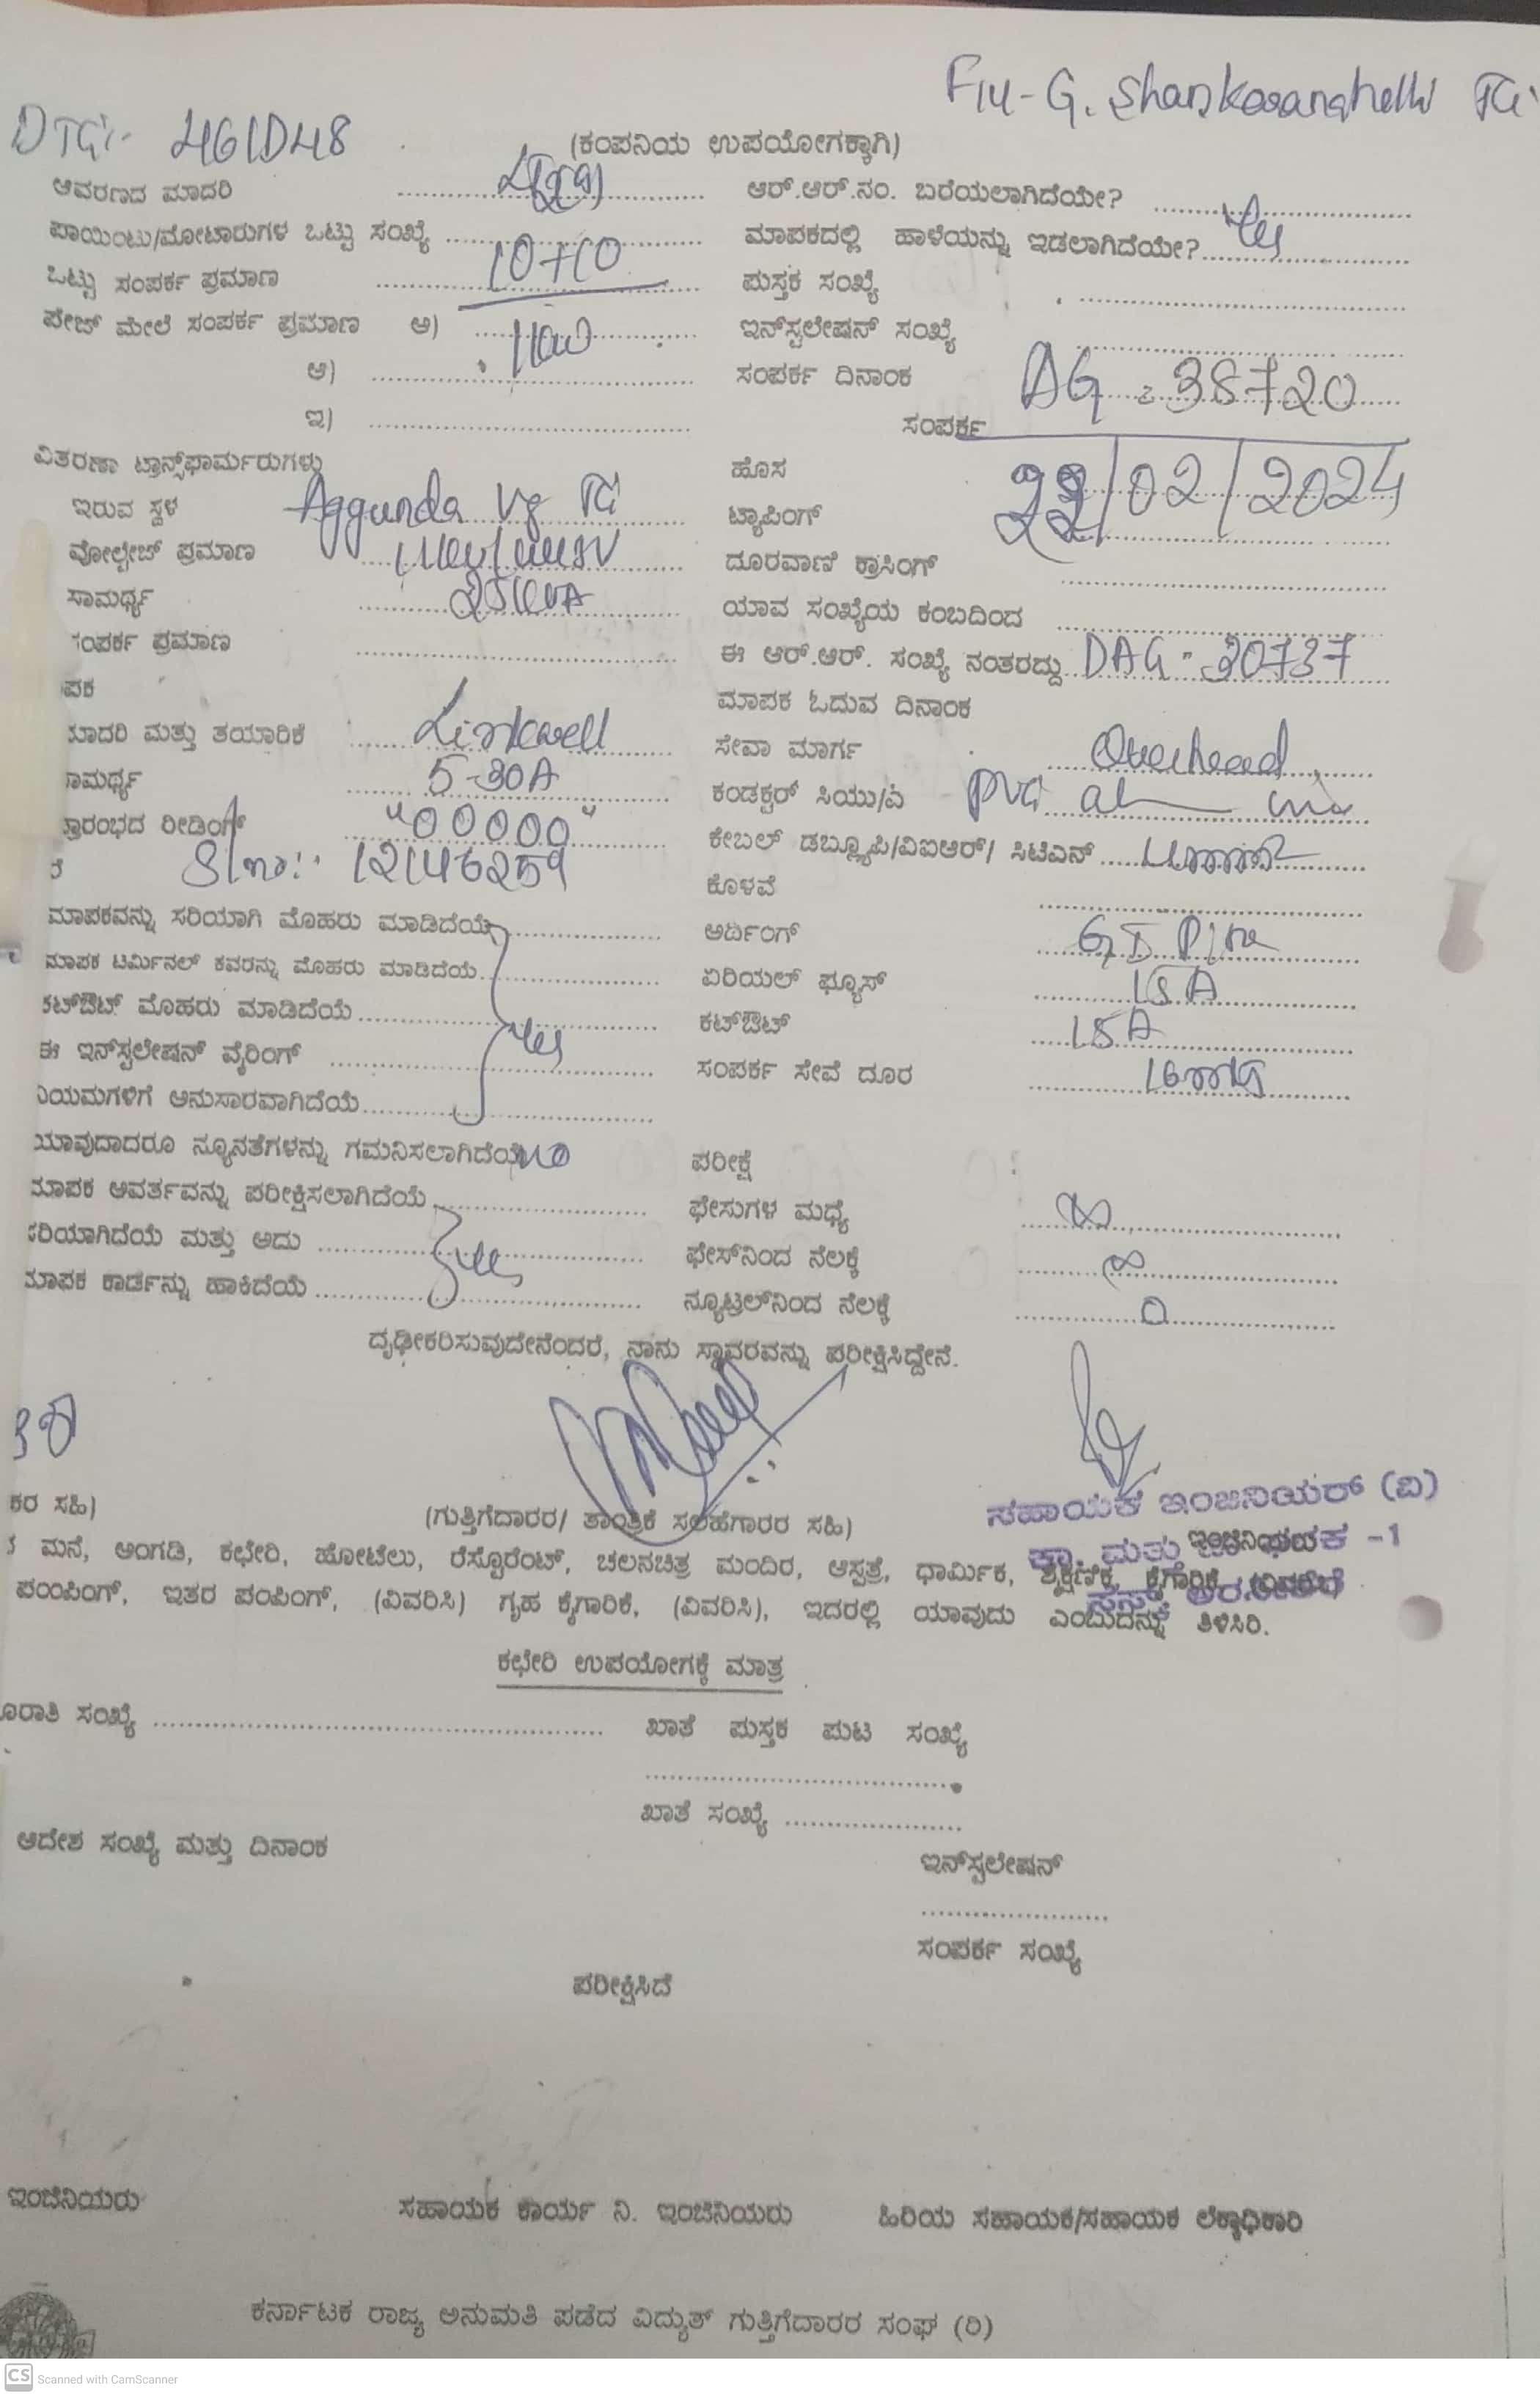 DTC:- 461D48
(ಕಂಪನಿಯ ಉಪಯೋಗಕ್ಕಾಗಿ)
ಆವರಣದ ಮಾದರಿ ........ ಆರ್.ಆರ್.ನಂ. ಬರೆಯಲಾಗಿದೆಯೇ? ........
ಪಾಯಿಂಟು/ಮೋಟಾರುಗಳ ಒಟ್ಟು ಸಂಖ್ಯೆ ........ 10+10 ಮಾಪಕದಲ್ಲಿ ಹಾಳೆಯನ್ನು ಇಡಲಾಗಿದೆಯೇ? Yes
ಒಟ್ಟು ಸಂಪರ್ಕ ಪ್ರಮಾಣ ........ ಪುಸ್ತಕ ಸಂಖ್ಯೆ ........
ಪೇಜ್ ಮೇಲೆ ಸಂಪರ್ಕ ಪ್ರಮಾಣ ಅ) ........ ಇನ್‌ಸ್ಟಲೇಷನ್ ಸಂಖ್ಯೆ ........
ಆ) ........ ಸಂಪರ್ಕ ದಿನಾಂಕ AG = 38720
ಇ) ........ ಸಂಪರ್ಕ
ವಿತರಣಾ ಟ್ರಾನ್ಸ್‌ಫಾರ್ಮರುಗಳು ಹೊಸ 22/02/2024
ಇರುವ ಸ್ಥಳ Aggunda Vg TC ಟ್ಯಾಪಿಂಗ್
ವೋಲ್ಟೇಜ್ ಪ್ರಮಾಣ ........ ದೂರವಾಣಿ ಕ್ರಾಸಿಂಗ್ ........
ಸಾಮರ್ಥ್ಯ 25KVA ಯಾವ ಸಂಖ್ಯೆಯ ಕಂಬದಿಂದ ........
ಸಂಪರ್ಕ ಪ್ರಮಾಣ ........ ಈ ಆರ್.ಆರ್. ಸಂಖ್ಯೆ ನಂತರದ್ದು DAG - 20737
ಪಕ ಮಾಪಕ ಓದುವ ದಿನಾಂಕ
ಮಾದರಿ ಮತ್ತು ತಯಾರಿಕೆ Linkwell ಸೇವಾ ಮಾರ್ಗ Overhead
ಸಾಮರ್ಥ್ಯ 5-30A ಕಂಡಕ್ಟರ್ ಸಿಯು/ಎ PVC
ಪ್ರಾರಂಭದ ರೀಡಿಂಗ್ "00000" ಕೇಬಲ್ ಡಬ್ಲ್ಯೂಪಿ/ವಿಐಆರ್/ ಸಿಟಿಎಸ್ ........
Sl no:- 12146259 ಕೊಳವೆ ........
ಮಾಪಕವನ್ನು ಸರಿಯಾಗಿ ಮೊಹರು ಮಾಡಿದೆಯೆ ........ ಅರ್ಥಿಂಗ್ GI Pipe
ಮಾಪಕ ಟರ್ಮಿನಲ್ ಕವರನ್ನು ಮೊಹರು ಮಾಡಿದೆಯೆ ........ ಏರಿಯಲ್ ಫ್ಯೂಸ್ 15A
ಕಟ್‌ಔಟ್ ಮೊಹರು ಮಾಡಿದೆಯೆ ........ Yes ಕಟ್‌ಔಟ್ 15A
ಈ ಇನ್‌ಸ್ಟಲೇಷನ್ ವೈರಿಂಗ್ ........ ಸಂಪರ್ಕ ಸೇವೆ ದೂರ ........
ನಿಯಮಗಳಿಗೆ ಅನುಸಾರವಾಗಿದೆಯೆ ........
ಯಾವುದಾದರೂ ನ್ಯೂನತೆಗಳನ್ನು ಗಮನಿಸಲಾಗಿದೆಯೆ NO ಪರೀಕ್ಷೆ
ಮಾಪಕ ಆವರ್ತವನ್ನು ಪರೀಕ್ಷಿಸಲಾಗಿದೆಯೆ ........ ಫೇಸುಗಳ ಮಧ್ಯೆ ∞
ಸರಿಯಾಗಿದೆಯೆ ಮತ್ತು ಅದು ........ Yes ಫೇಸ್‌ನಿಂದ ನೆಲಕ್ಕೆ ∞
ಮಾಪಕ ಕಾರ್ಡನ್ನು ಹಾಕಿದೆಯೆ ........ ನ್ಯೂಟ್ರಲ್‌ನಿಂದ ನೆಲಕ್ಕೆ 0
ದೃಢೀಕರಿಸುವುದೇನೆಂದರೆ, ನಾನು ಸ್ಥಾವರವನ್ನು ಪರೀಕ್ಷಿಸಿದ್ದೇನೆ.
ಸಹಾಯಕ ಇಂಜಿನಿಯರ್ (ವಿ)
ಕರ ಸಹಿ) (ಗುತ್ತಿಗೆದಾರರ/ ತಾಂತ್ರಿಕ ಸಲಹೆಗಾರರ ಸಹಿ)
ಮನೆ, ಅಂಗಡಿ, ಕಛೇರಿ, ಹೋಟೆಲು, ರೆಸ್ಟೊರೆಂಟ್, ಚಲನಚಿತ್ರ ಮಂದಿರ, ಆಸ್ಪತ್ರೆ, ಧಾರ್ಮಿಕ, ಶೈಕ್ಷಣಿಕ, ಕೈಗಾರಿಕೆ,
ಪಂಪಿಂಗ್, ಇತರ ಪಂಪಿಂಗ್, (ವಿವರಿಸಿ) ಗೃಹ ಕೈಗಾರಿಕೆ, (ವಿವರಿಸಿ), ಇದರಲ್ಲಿ ಯಾವುದು ಎಂಬುದನ್ನು ತಿಳಿಸಿರಿ.
ಕಛೇರಿ ಉಪಯೋಗಕ್ಕೆ ಮಾತ್ರ
ಸಂಖ್ಯೆ ........ ಖಾತೆ ಪುಸ್ತಕ ಪುಟ ಸಂಖ್ಯೆ
ಖಾತೆ ಸಂಖ್ಯೆ ........
ಆದೇಶ ಸಂಖ್ಯೆ ಮತ್ತು ದಿನಾಂಕ
ಇನ್‌ಸ್ಟಲೇಷನ್
ಸಂಪರ್ಕ ಸಂಖ್ಯೆ
ಪರೀಕ್ಷಿಸಿದೆ
ಇಂಜಿನಿಯರು ಸಹಾಯಕ ಕಾರ್ಯ ನಿ. ಇಂಜಿನಿಯರು ಹಿರಿಯ ಸಹಾಯಕ/ಸಹಾಯಕ ಲೆಕ್ಕಾಧಿಕಾರಿ
ಕರ್ನಾಟಕ ರಾಜ್ಯ ಅನುಮತಿ ಪಡೆದ ವಿದ್ಯುತ್ ಗುತ್ತಿಗೆದಾರರ ಸಂಘ (ರಿ)
CS Scanned with CamScanner